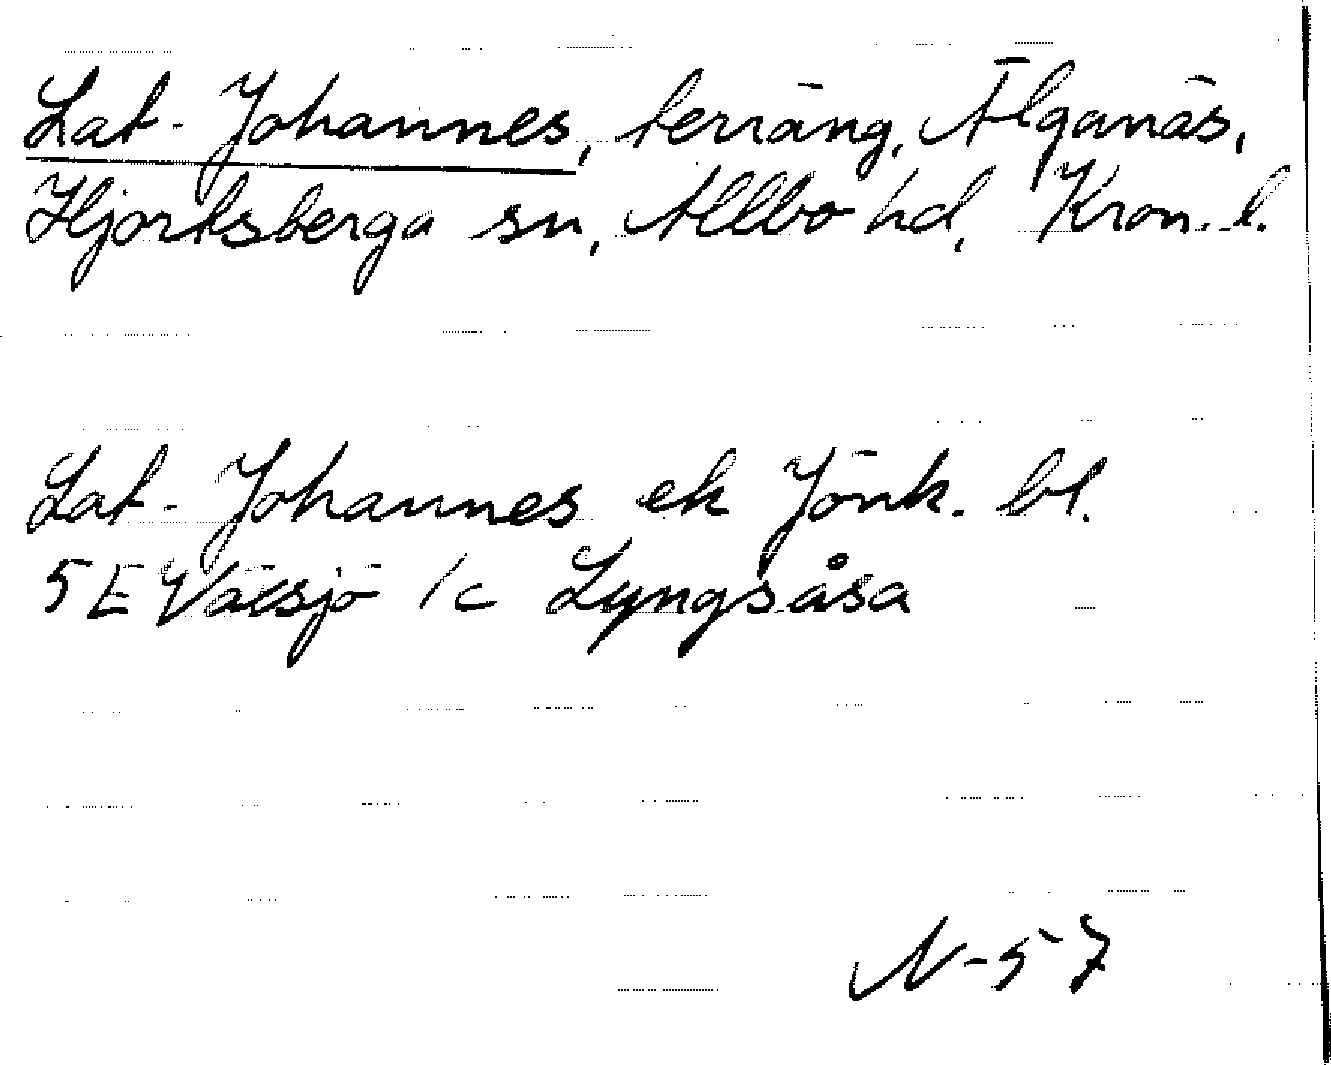 Lat-Johannes, terräng, Älganäs,
Hjortsberga sn, Allbo hd, Kron. l.
Lat-Johannes ek Jönk. bl.
5E Växsjö 1c Lyngsåsa
N-57